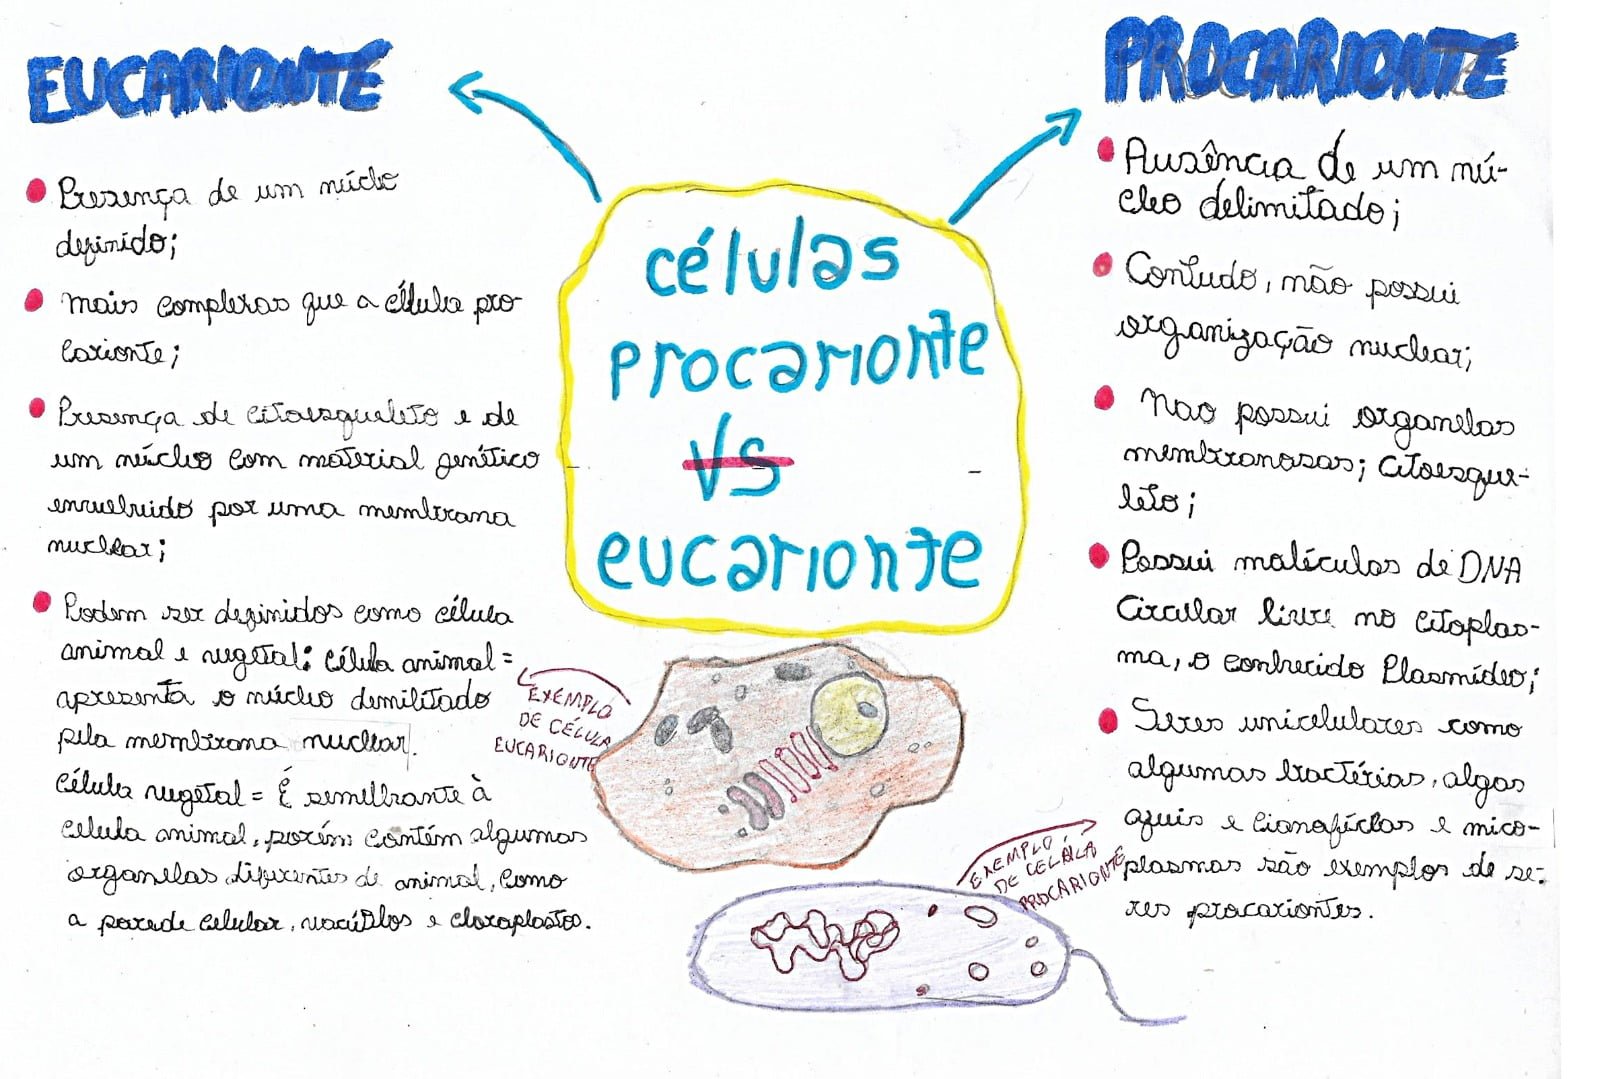 EUCARIONTE
Presença de um núcleo
definido;
mais complexas que a célula pro-
carionte;
Presença de citoesqueleto e de
um núcleo com material genético
envolvido por uma membrana
nuclear;
Podem ser definidos como célula
animal e vegetal: célula animal =
apresenta o núcleo demilitado
pela membrana nuclear.
célula vegetal = É semelhante à
célula animal, porém contém algumas
organelas diferentes de animal, como
a parede celular, vacúolos e cloroplastos.
células
procarionte
VS
eucarionte
EXEMPLO
DE CÉLULA
EUCARIONTE
EXEMPLO
DE CELÁLA
PROCARIONTE
PROCARIONTE
Ausência de um nú-
cleo delimitado;
Contudo, não possui
organização nuclear;
Nao possui organelas
membranosas; citoesque-
leto;
Possui moléculas de DNA
Circular livre no citoplas-
ma, o conhecido Plasmídeo;
Seres unicelulares como
algumas bactérias, algas
azuis e cianofíclas e mico-
plasmas são exemplos de se-
res procariontes.